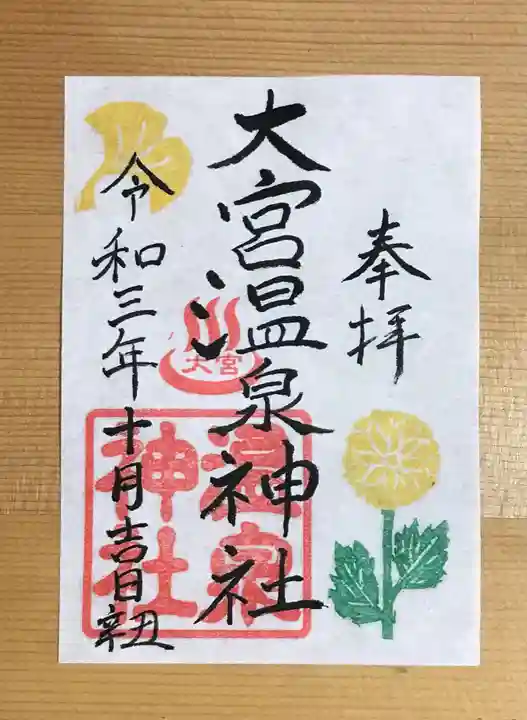 奉拝
大宮温泉神社
大宮
温泉
神社
令和三年十月吉日辛丑